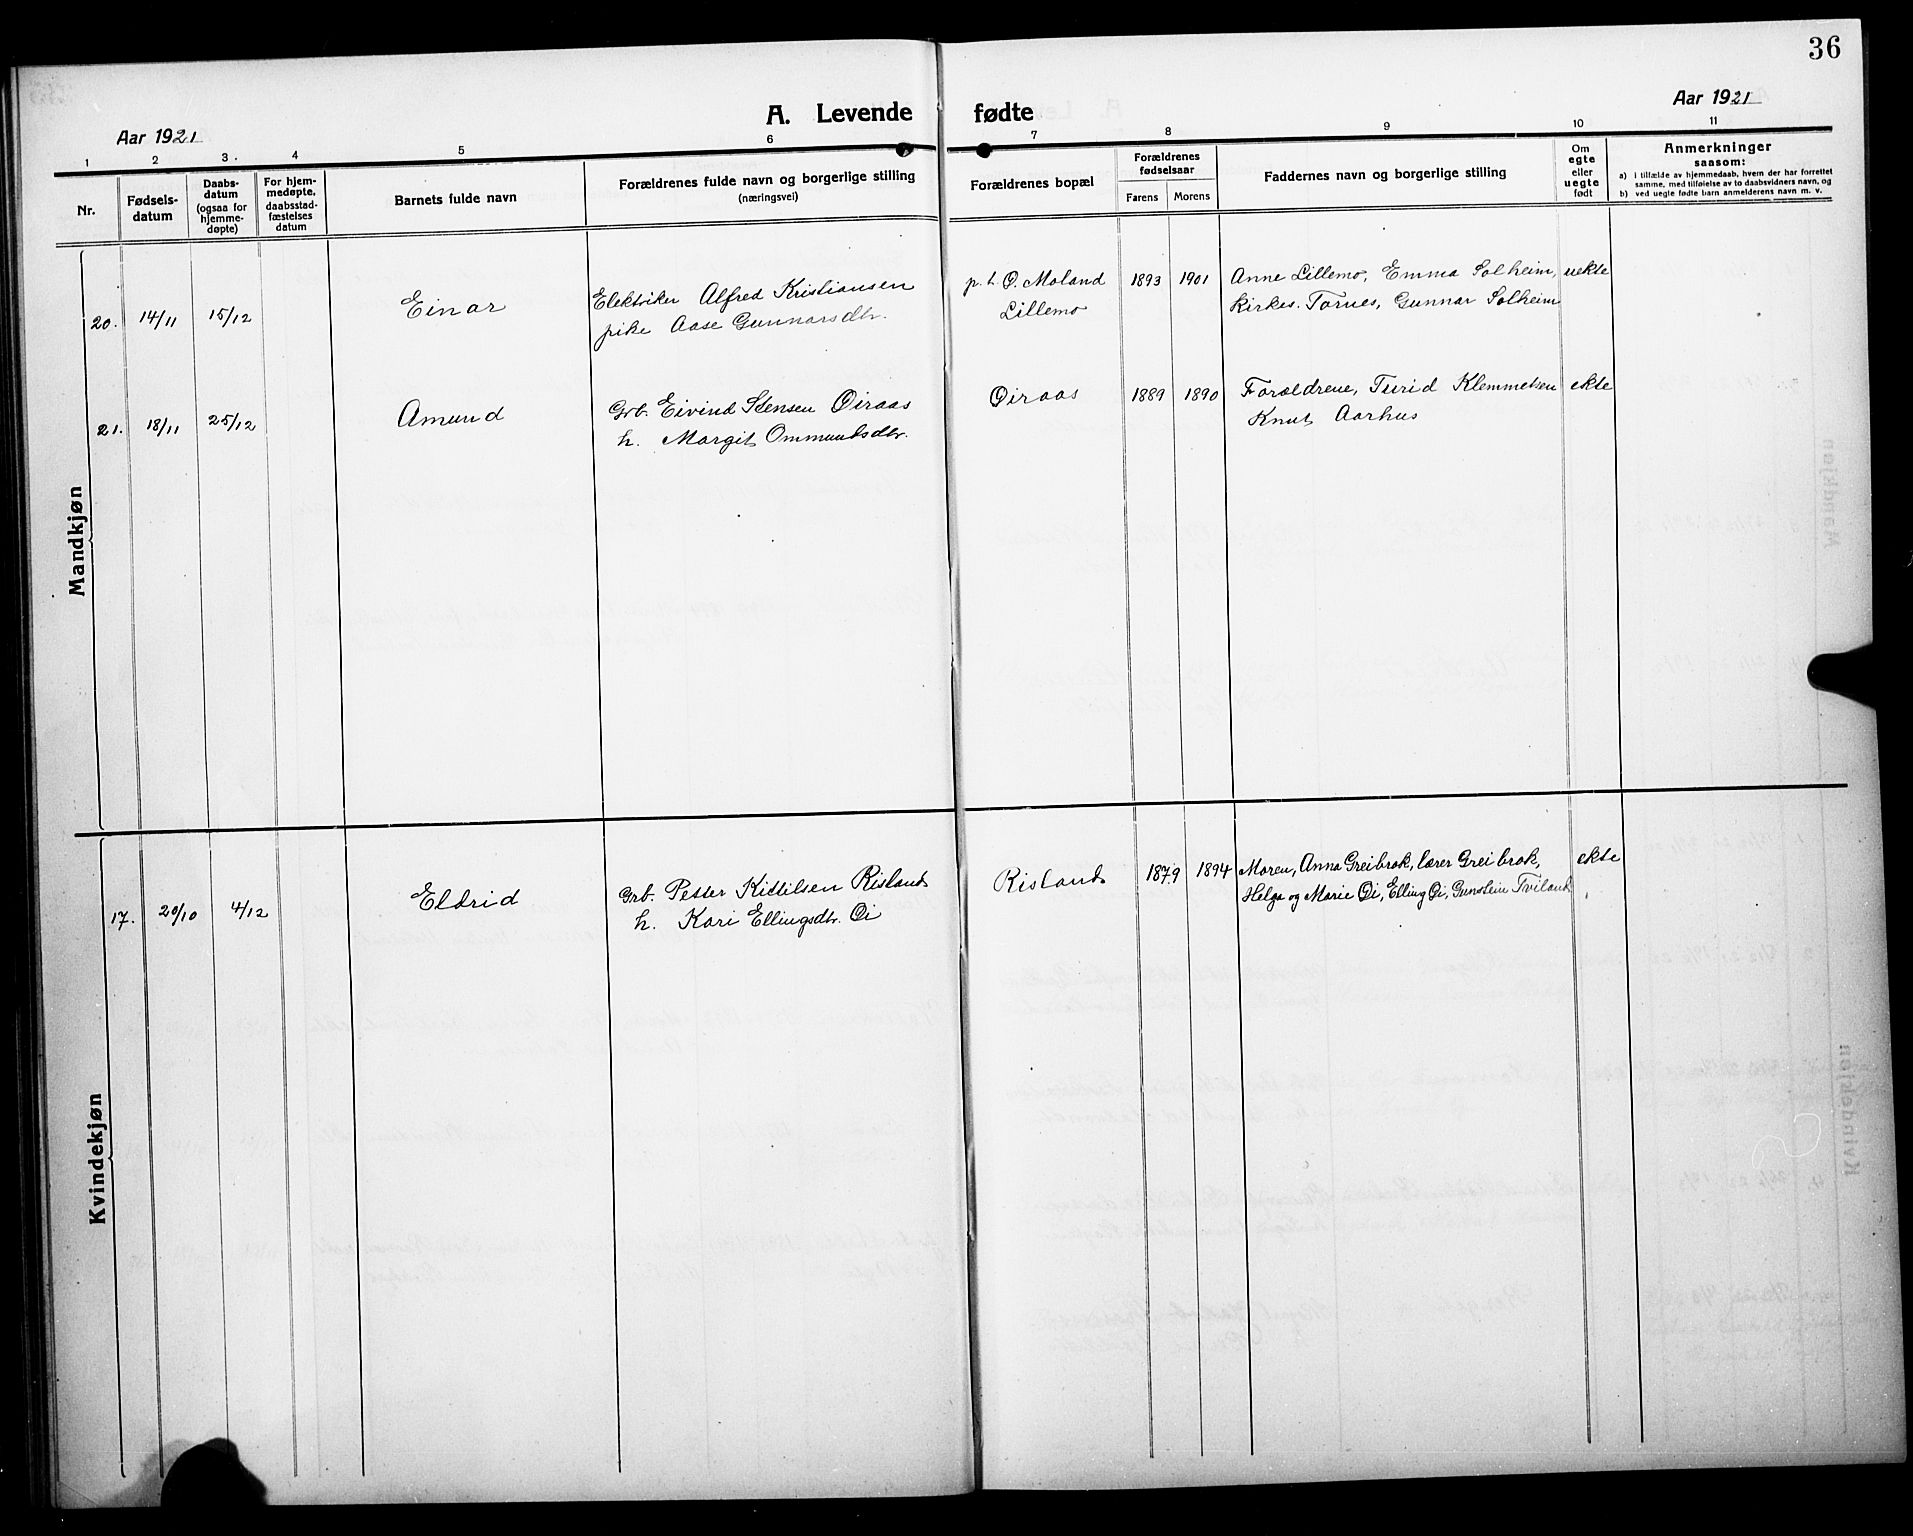 36
A. Levende fødte
Aar 1921
Aar 1921
1 2 3. 4 5 6 7 8 9 10 11
Nr.
Fødsels-
datum
Daabs-
datum
(ogsaa for
hjemme-
døpte)
For hjem-
medøpte,
daabsstad-
fæstelses
datum
Barnets fulde navn
Forældrenes fulde navn og borgerlige stilling
(næringsvei)
Forældrenes bopæl
Forældrenes
fødselsaar
Farens Morens
Faddernes navn og borgerlige stilling
Om
egte
eller
uegte
født
Anmerkninger
saasom:
a) i tilfælde av hjemmedaab, hvem der har forrettet
samme, med tilføielse av to daabsvidners navn, og
b) ved uegte fødte barn anmelderens navn m. v.
Mandkjøn
20. 14/11 15/12 Einar
Elektriker Alfred Kristiansen
pike Aase Gunnarsdtr.
p. t. O. Moland
Lillemo
1893 1901
Anne Lillemo, Emma Solheim,
Kirkes. Tornes, Gunnar Solheim
uekte
21. 18/11 25/12 Amund
Grb. Eivind Stensen Øiraas
h. Margit Ommundsdtr.
Øiraas
1889 1890
Forældrene, Turid Klemmetsen
Knut Aarhus
ekte
Kvindekjøn
17. 20/10 4/12 Eldrid
Grb. Petter Kittilsen Risland
h. Kari Ellingsdtr. Øi
Risland
1879 1894
Moren, Anna Greibrok, lærer Greibrok,
Helga og Marie Øi, Elling Øi, Gunstein Tviland
ekte